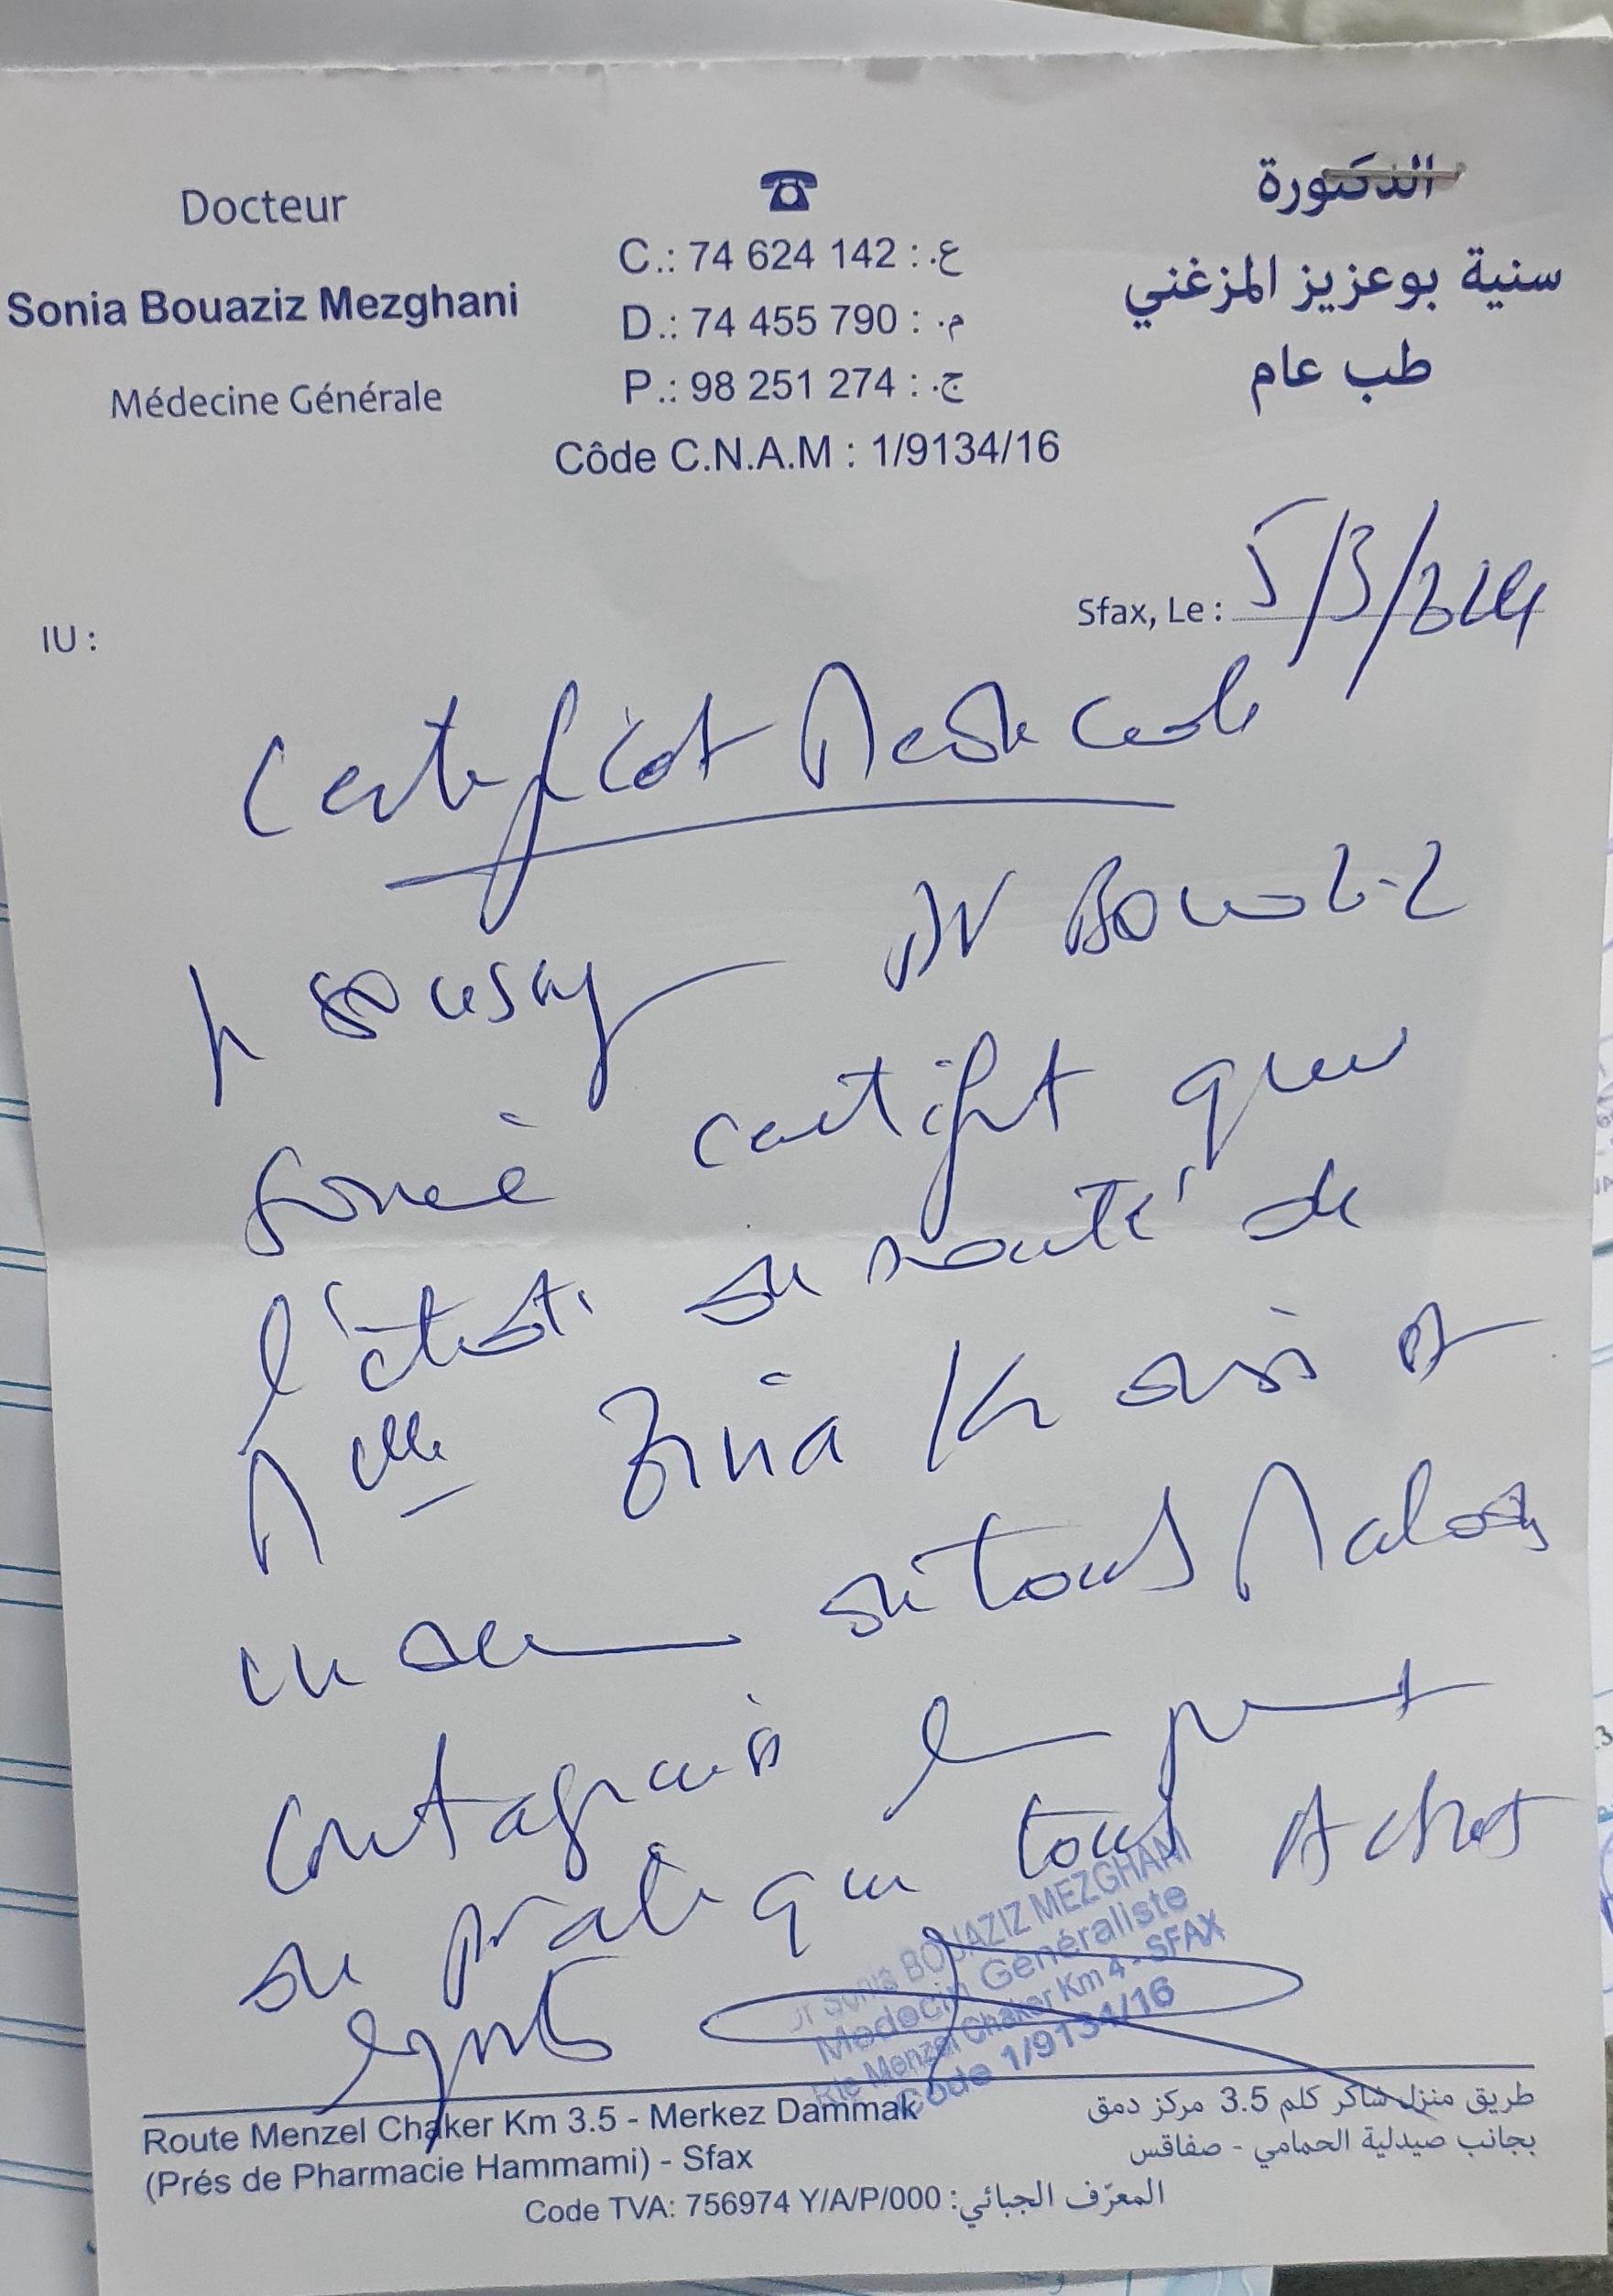 Docteur
Sonia Bouaziz Mezghani
Médecine Générale
C.: 74 624 142 : ع.
D.: 74 455 790 : م.
P.: 98 251 274 : ج.
Côde C.N.A.M : 1/9134/16
الدكتورة
سنية بوعزيز المزغني
طب عام
Sfax, Le : 5/3/2024
IU :
Certificat Medical
soussigné Dr Bouaziz
Sonia certifie que
l'état de santé de
Melle Zina
de toutes Maladies
contagieuses et peut
de pratique tout
Dr Sonia BOUAZIZ MEZGHANI
Médecin Généraliste
Rte Menzel Chaker Km 4 - SFAX
Code 1/9134/16
Route Menzel Chaker Km 3.5 - Merkez Dammak
(Prés de Pharmacie Hammami) - Sfax
طريق منزل شاكر كلم 3.5 مركز دمق
بجانب صيدلية الحمامي - صفاقس
Code TVA: 756974 Y/A/P/000 :المعرّف الجبائي